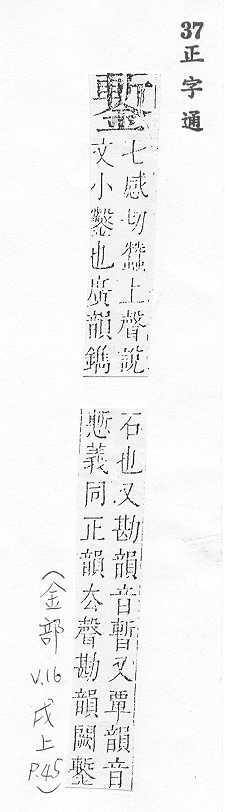 37正字通
鏨
七感切蠶上聲說
文小鑿也廣韻鐫
石也又勘韻音暫又覃韻音
慙義同正韻厺聲勘韻闕鏨
(金部 V.16 戌上 P.45)